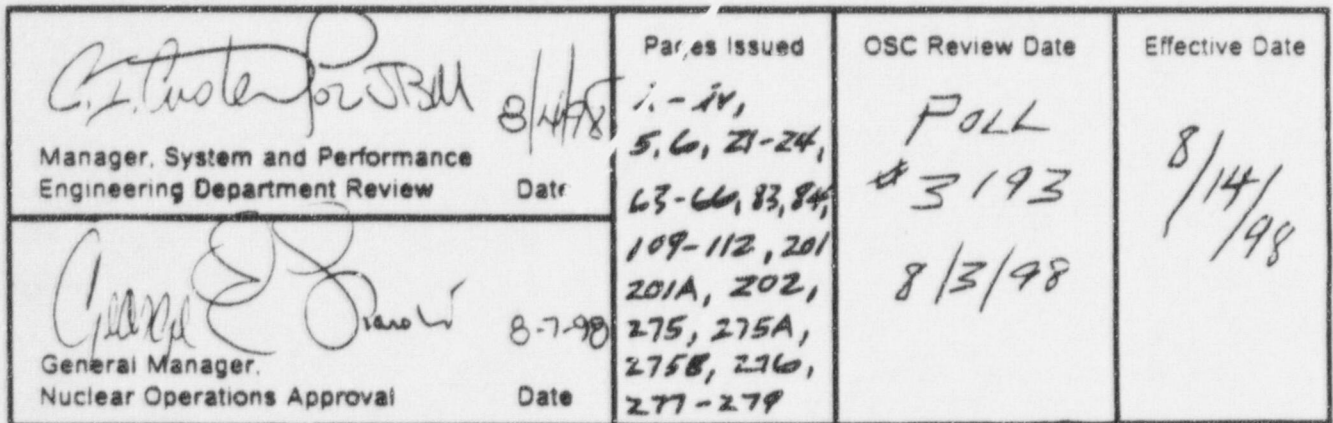 C.I. Custer for JBM 8/4/98
Manager, System and Performance
Engineering Department Review Date
8-7-98
General Manager,
Nuclear Operations Approval Date
Pages Issued
i - iv,
5, 6, 21-24,
63-66, 83, 84,
109-112, 201
201A, 202,
275, 275A,
275B, 276,
277-279
OSC Review Date
POLL
# 3193
8/3/98
Effective Date
8/14/98